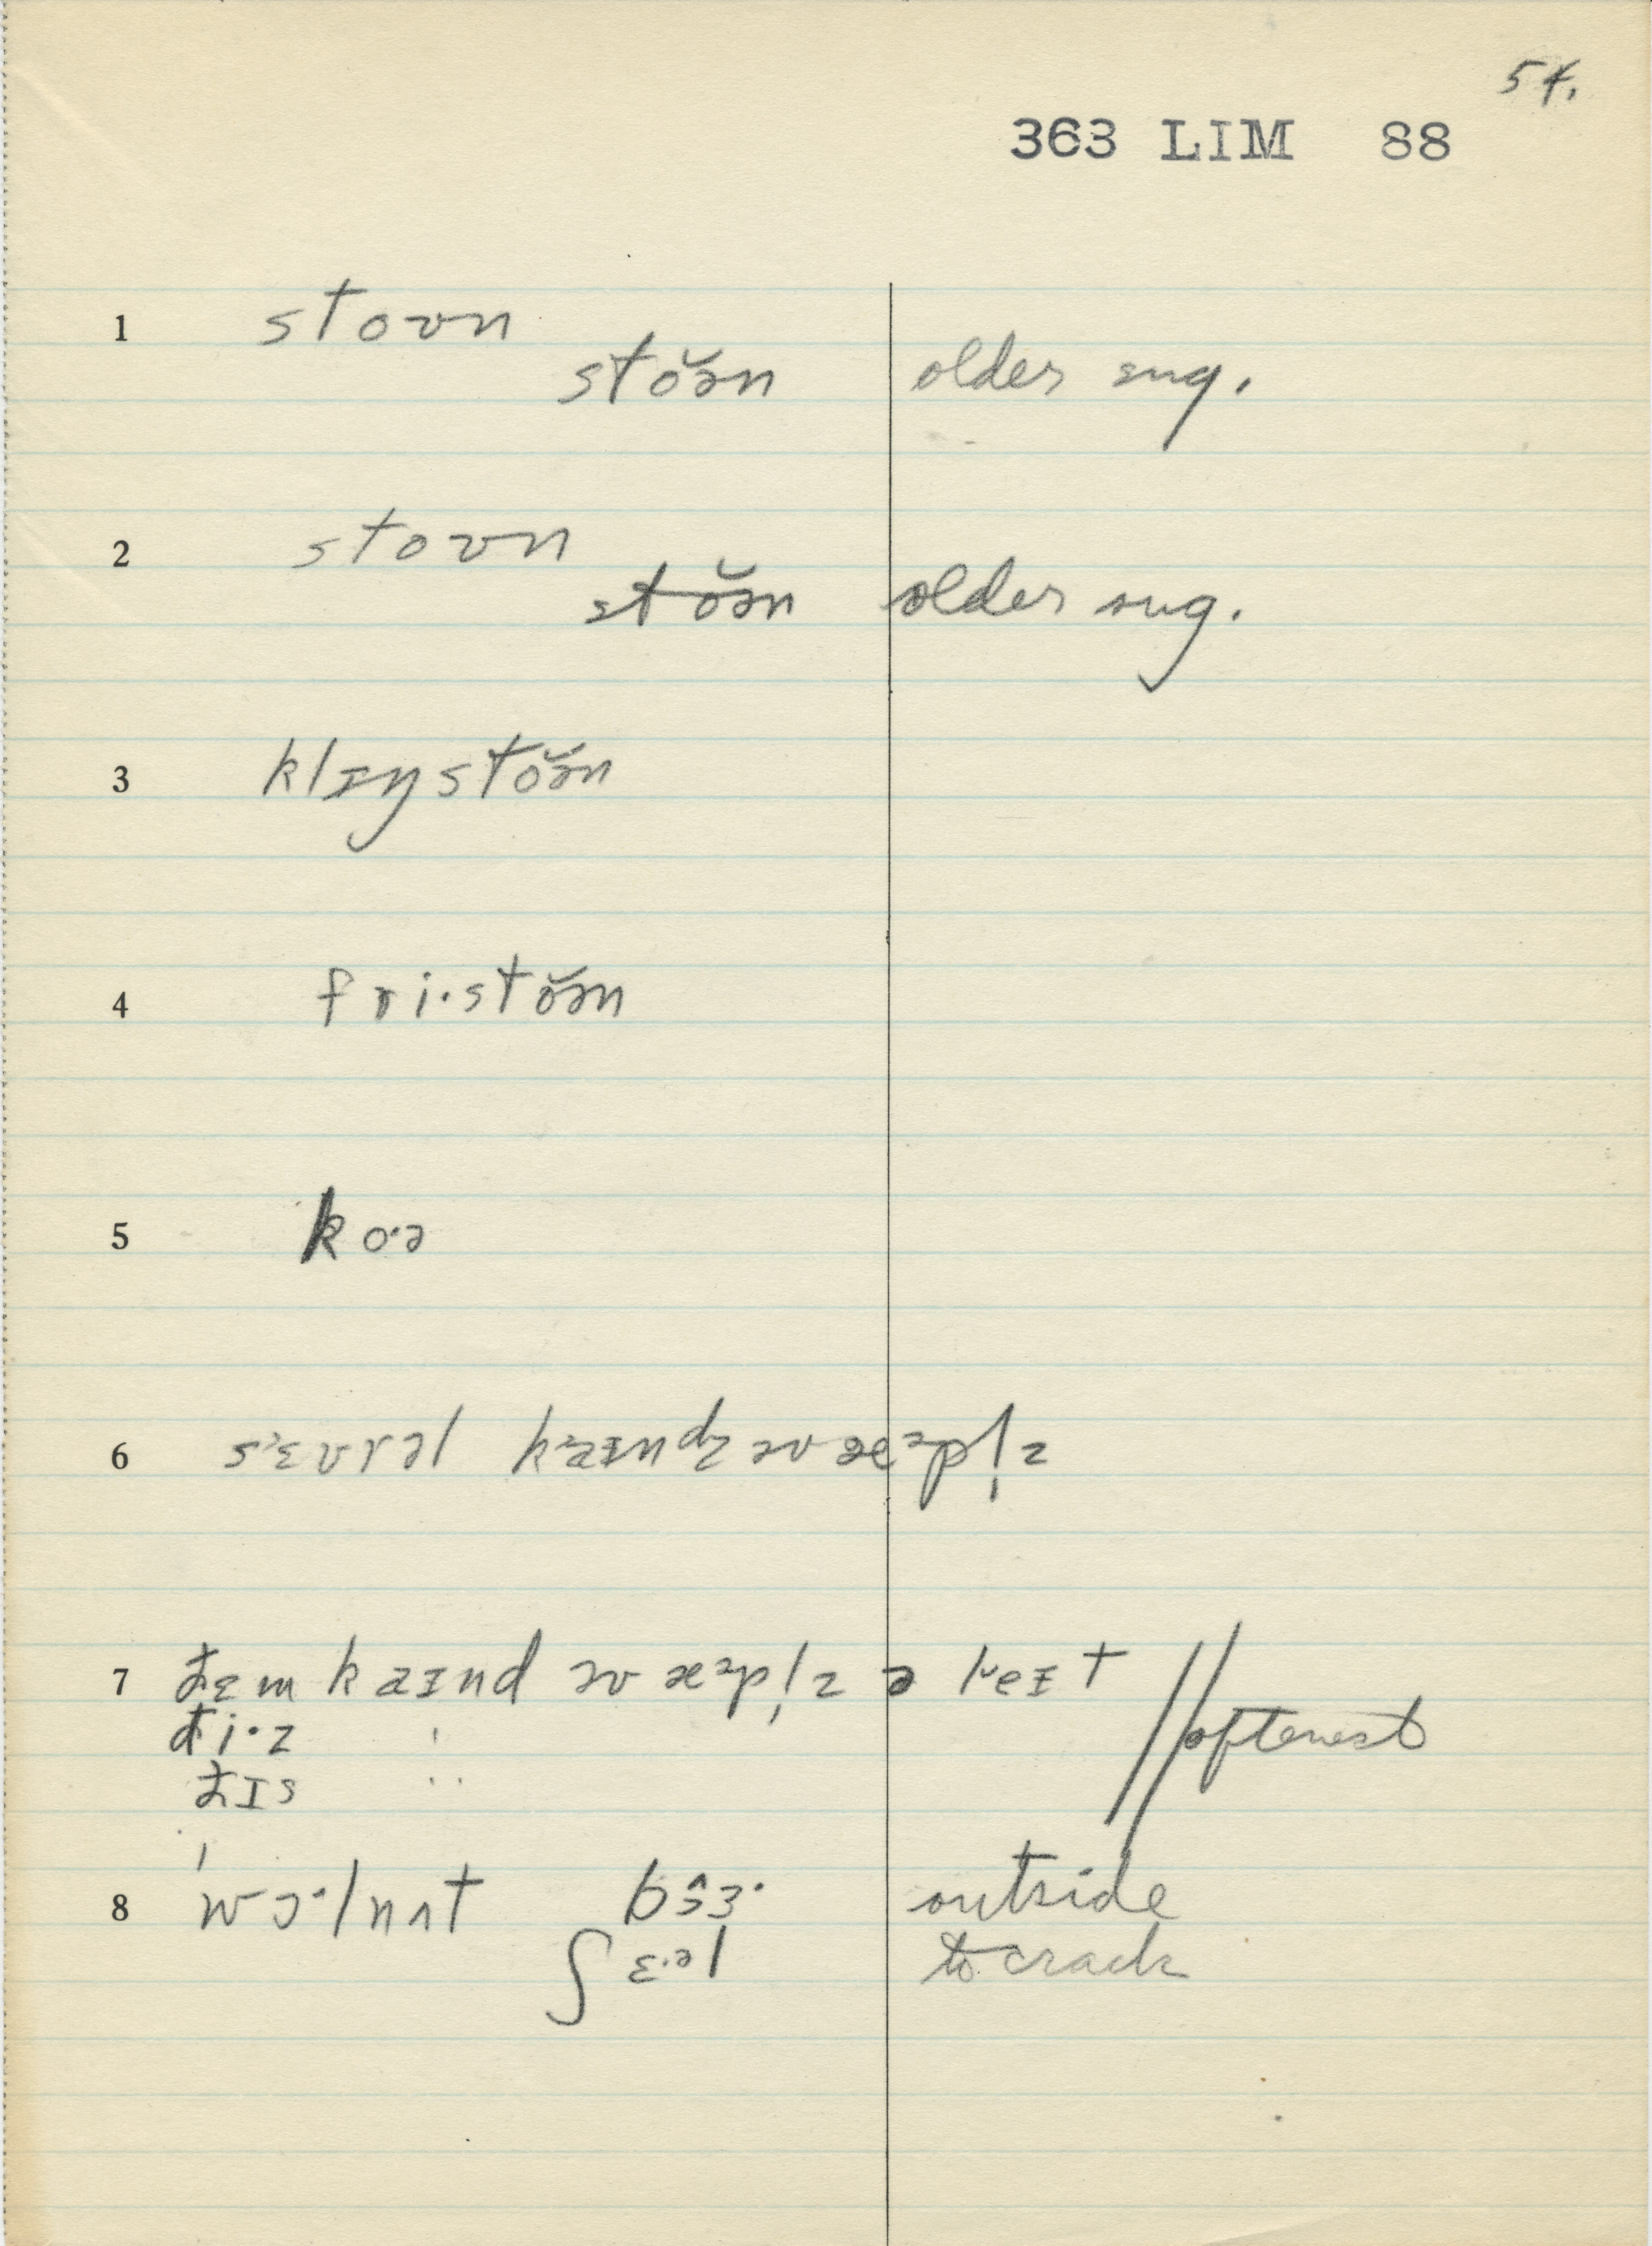 54.
363 LIM 88
1 stoʊn
stŏən older sug.
2 stoʊn
stŏən older sug.
3 klɪŋstŏən
4 fri·stŏən
5 ko·ə
6 sɛvrəl kaɪndz əv æᵊpl̩z
7 đɛm kaɪnd əv æᵊpl̩z ə reɪt // oftenest
đi·z
đɪs
8 wɔ·lnʌt bɜ· outside
ʃɛ·əl to crack